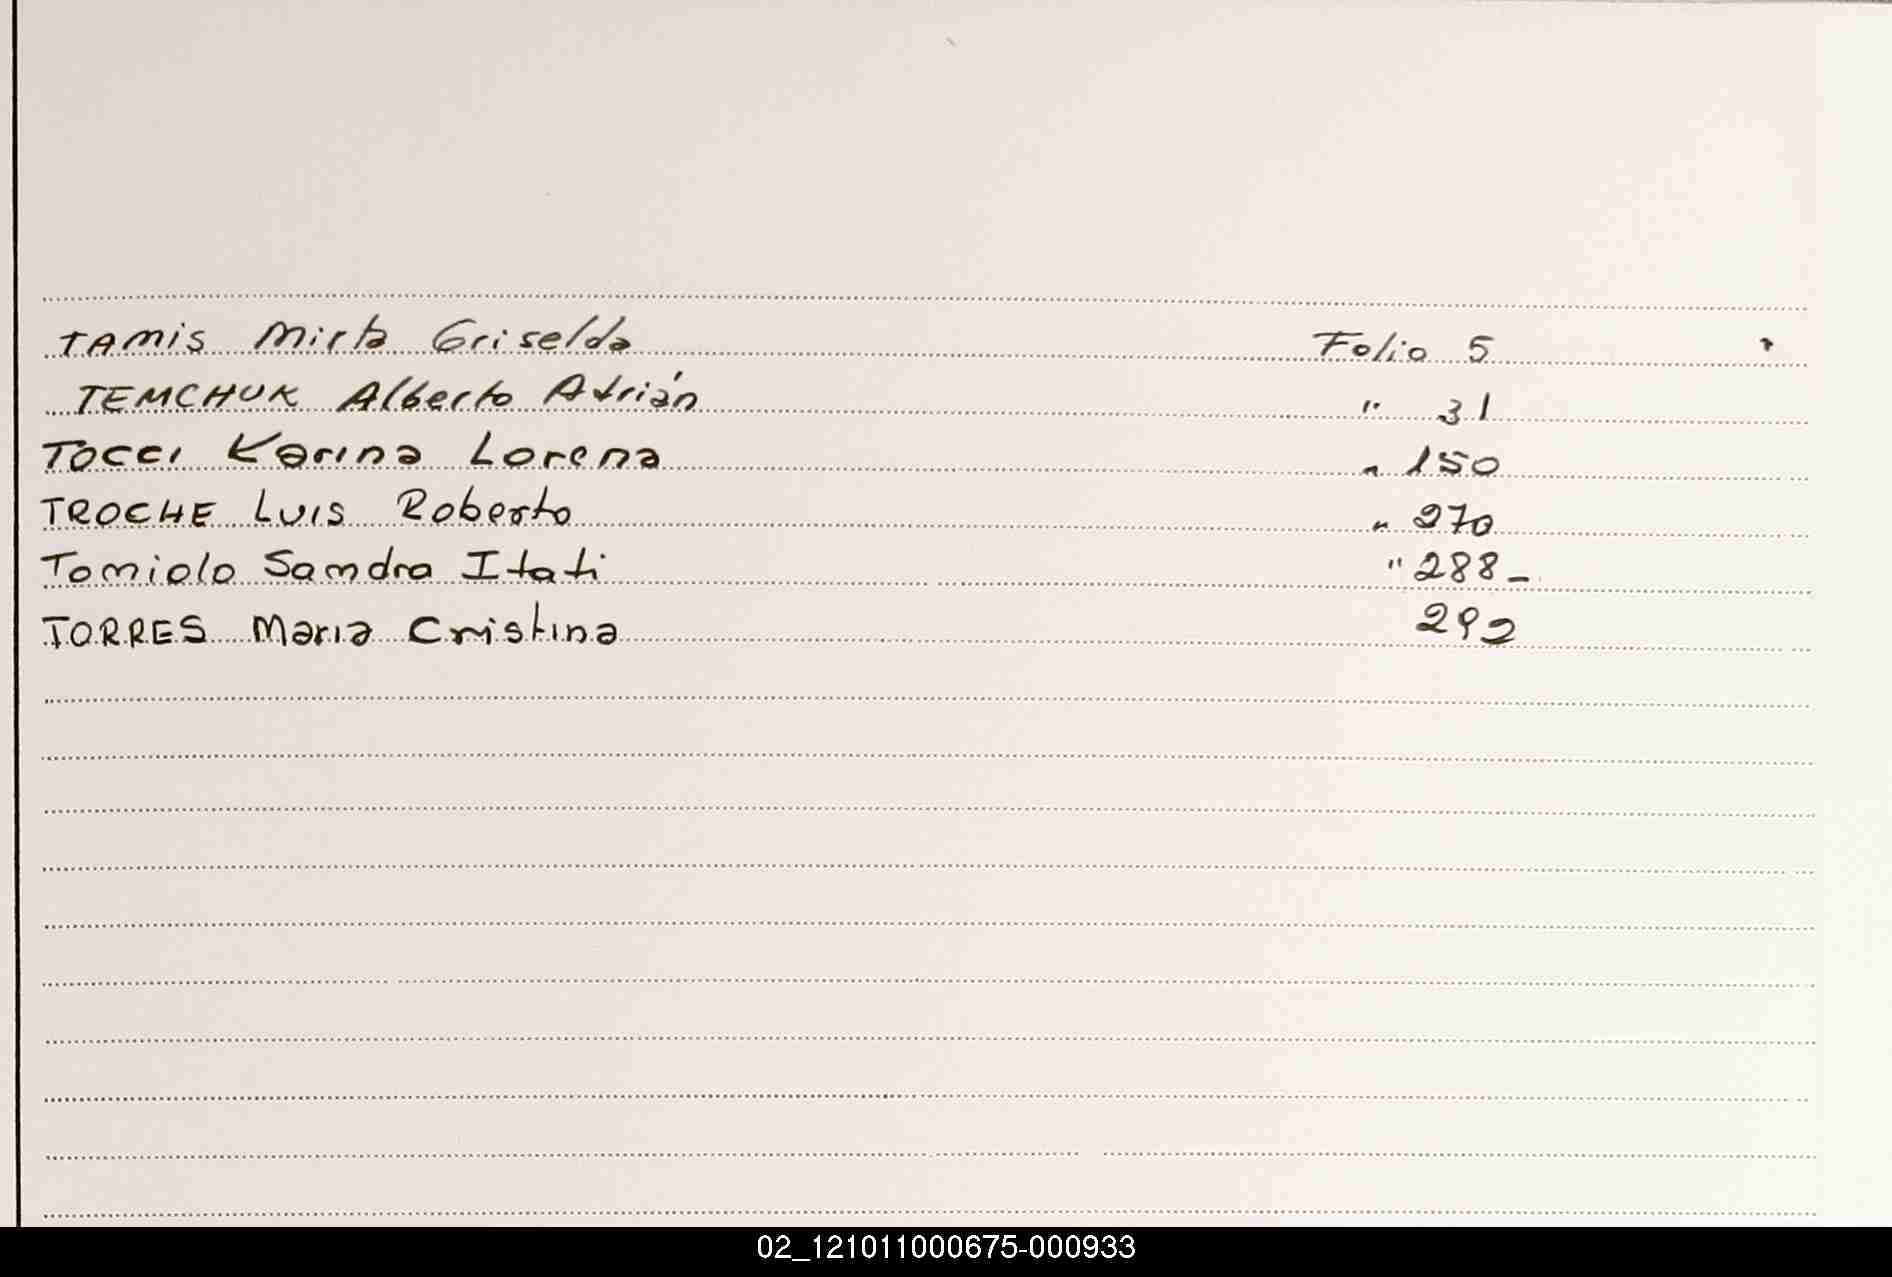 TAMIS Mirta Griselda Folio 5
TEMCHUK Alberto Adrián " 31
TOCCI Karina Lorena " 150
TROCHE LUIS Roberto " 270
Tomiolo Sandra Itati " 288-
TORRES Maria Cristina 292
02_121011000675-000933